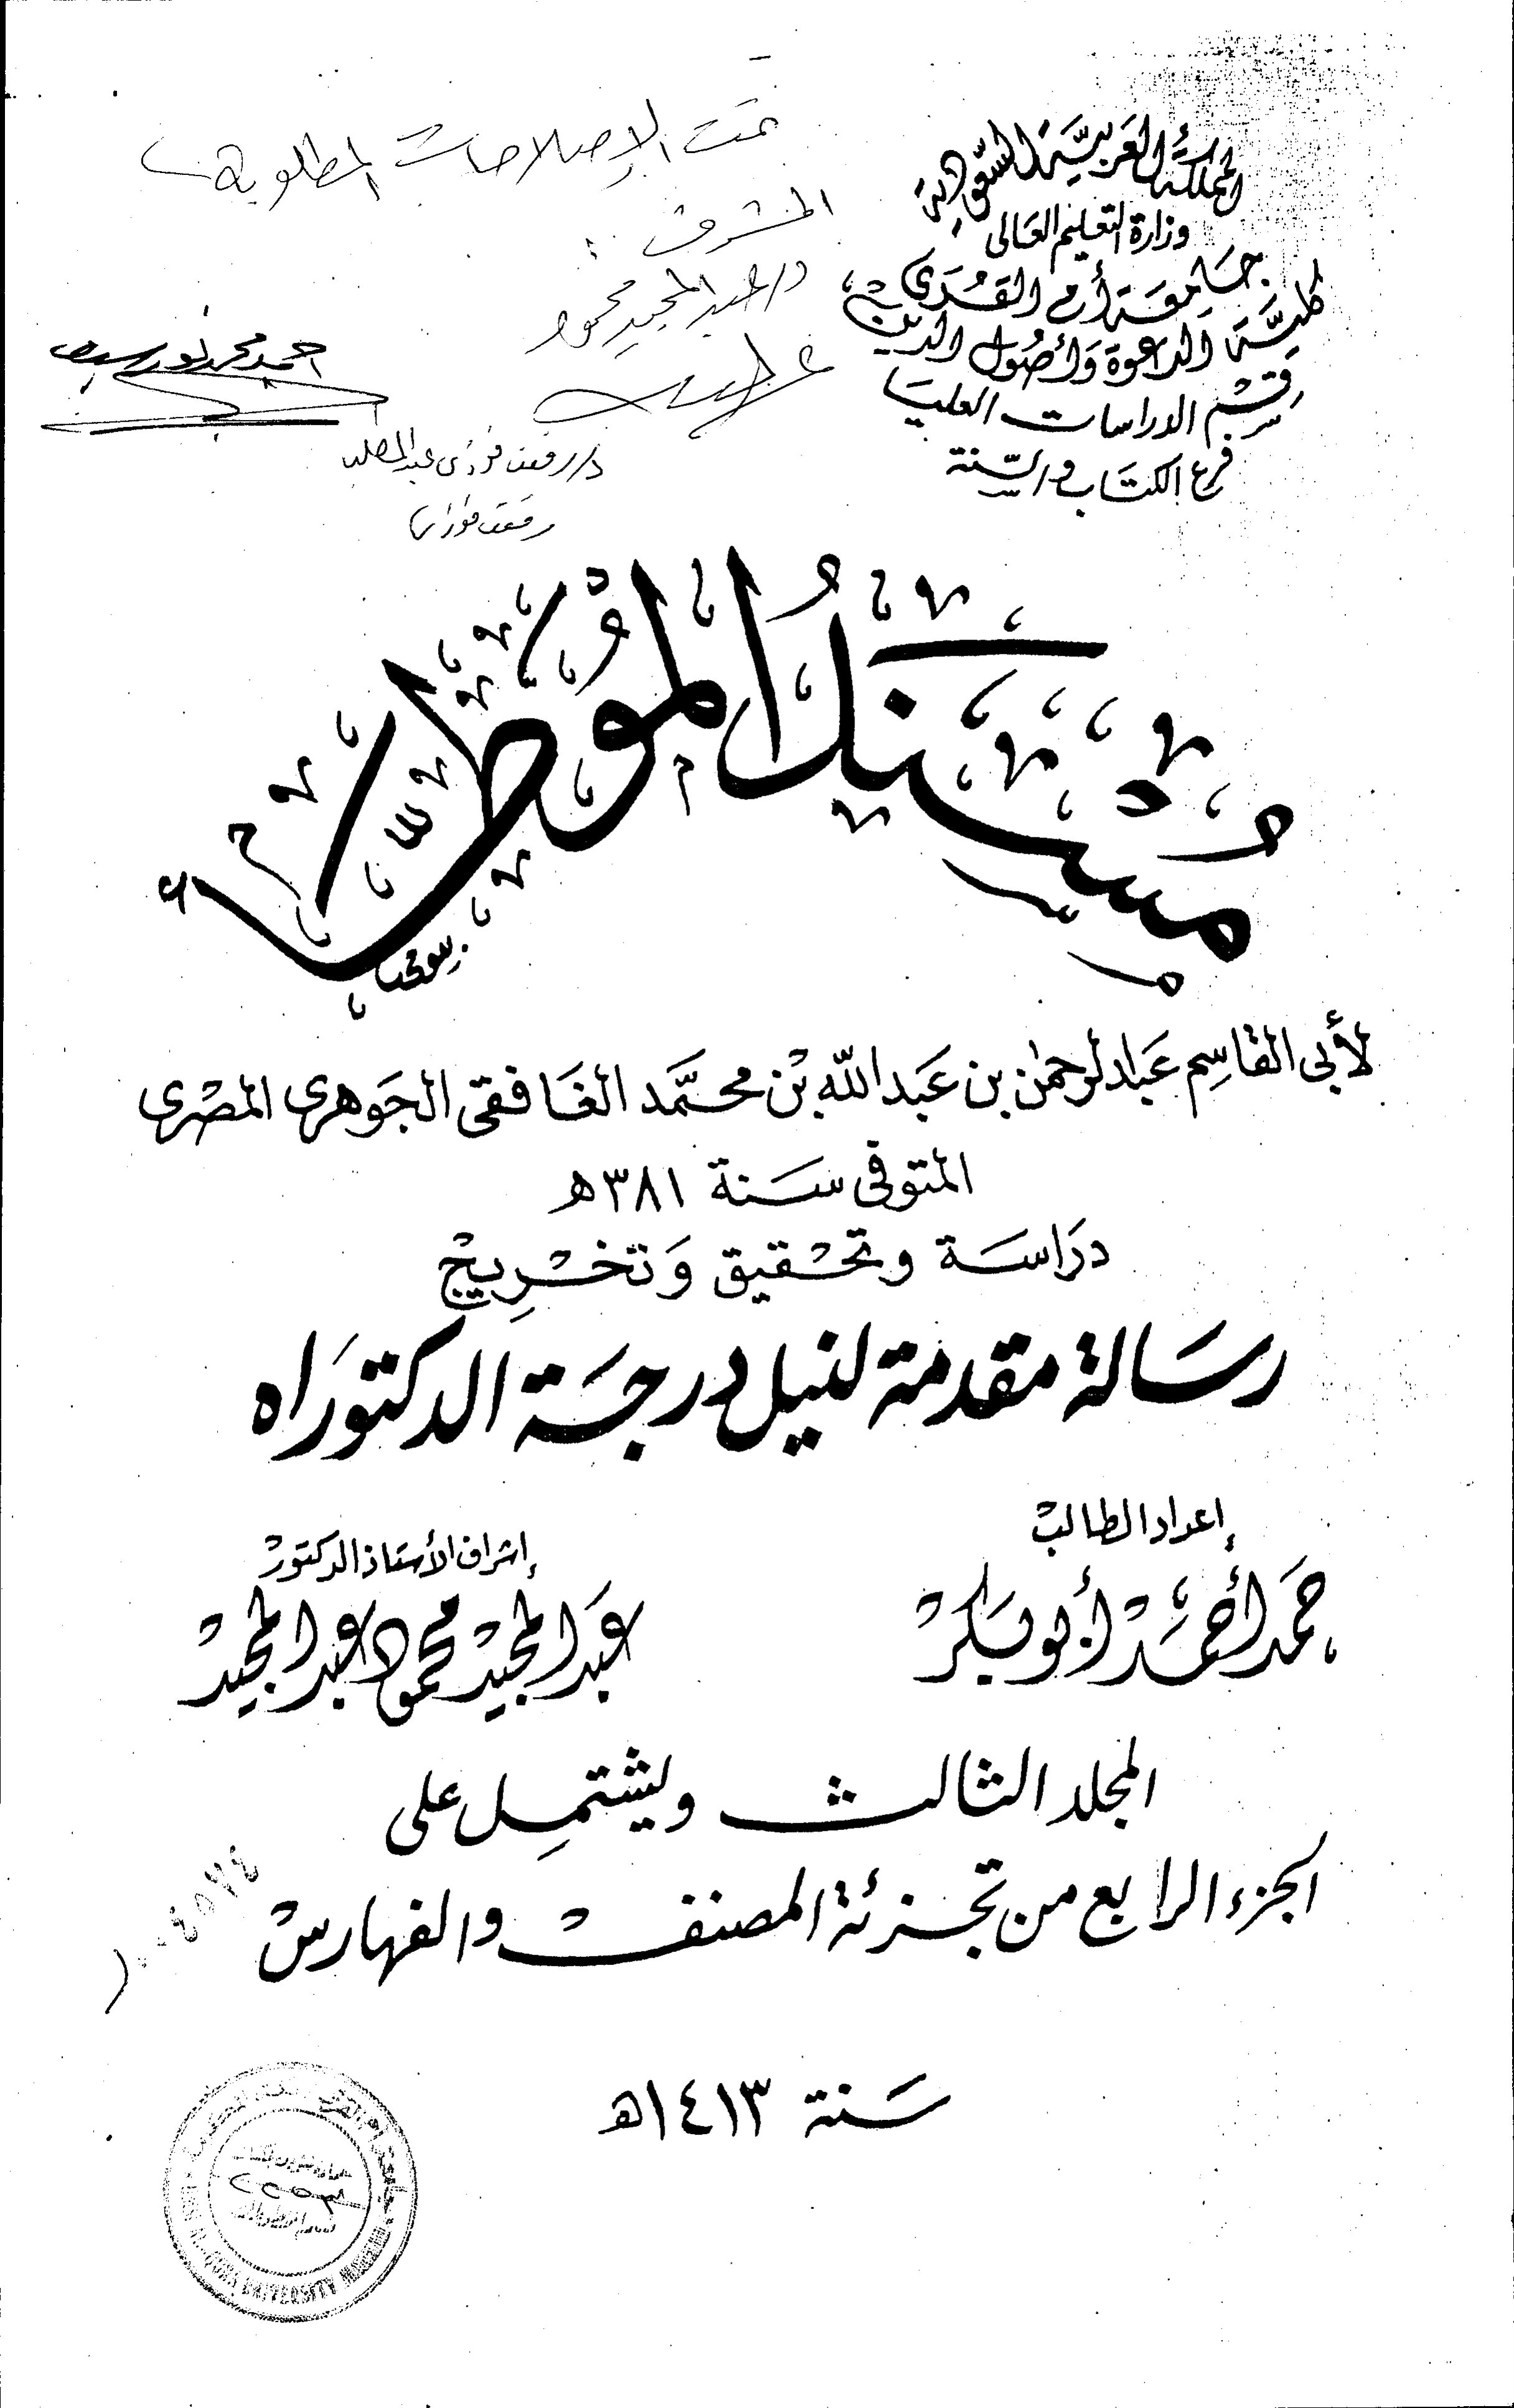 المملكة العربية السعودية
وزارة التعليم العالى
جَامِعَة أم القُرَى
كليَّة الدعوة وَأصُول الدين
قِسْم الدراسات العليَا
فرع الكتَاب والسّنة
تمت الإصلاحات المطلوبة
المشرف
د/ عبد المجيد محمود
احمد محمد نور سيف
د/ رفعت فوزى عبد المطلب
رفعت فوزى
مُسْنَدُ المُوَطَّأ
لأبى القاسِم عَبد الرحمٰن بن عَبد اللّه بْن محمَّد الغَافقى الجَوهرى المصْرى
المتوفى سَنة ٣٨١ه
درَاسَة وتحْقيق وَتخْرِيجْ
رسَالة مقدمة لنيل درجَة الدكتورَاه
إعداد الطالبْ
حَمد أحْمَدْ أبو بَكرْ
إشراف الأستاذ الدكتورْ
عَبد المجيْد محمود عبد المجيْد
المجلد الثالث ويشتمِل على
الجزء الرابع من تجزئة المصنفْ والفهارسْ
سَنة ١٤١٣ه